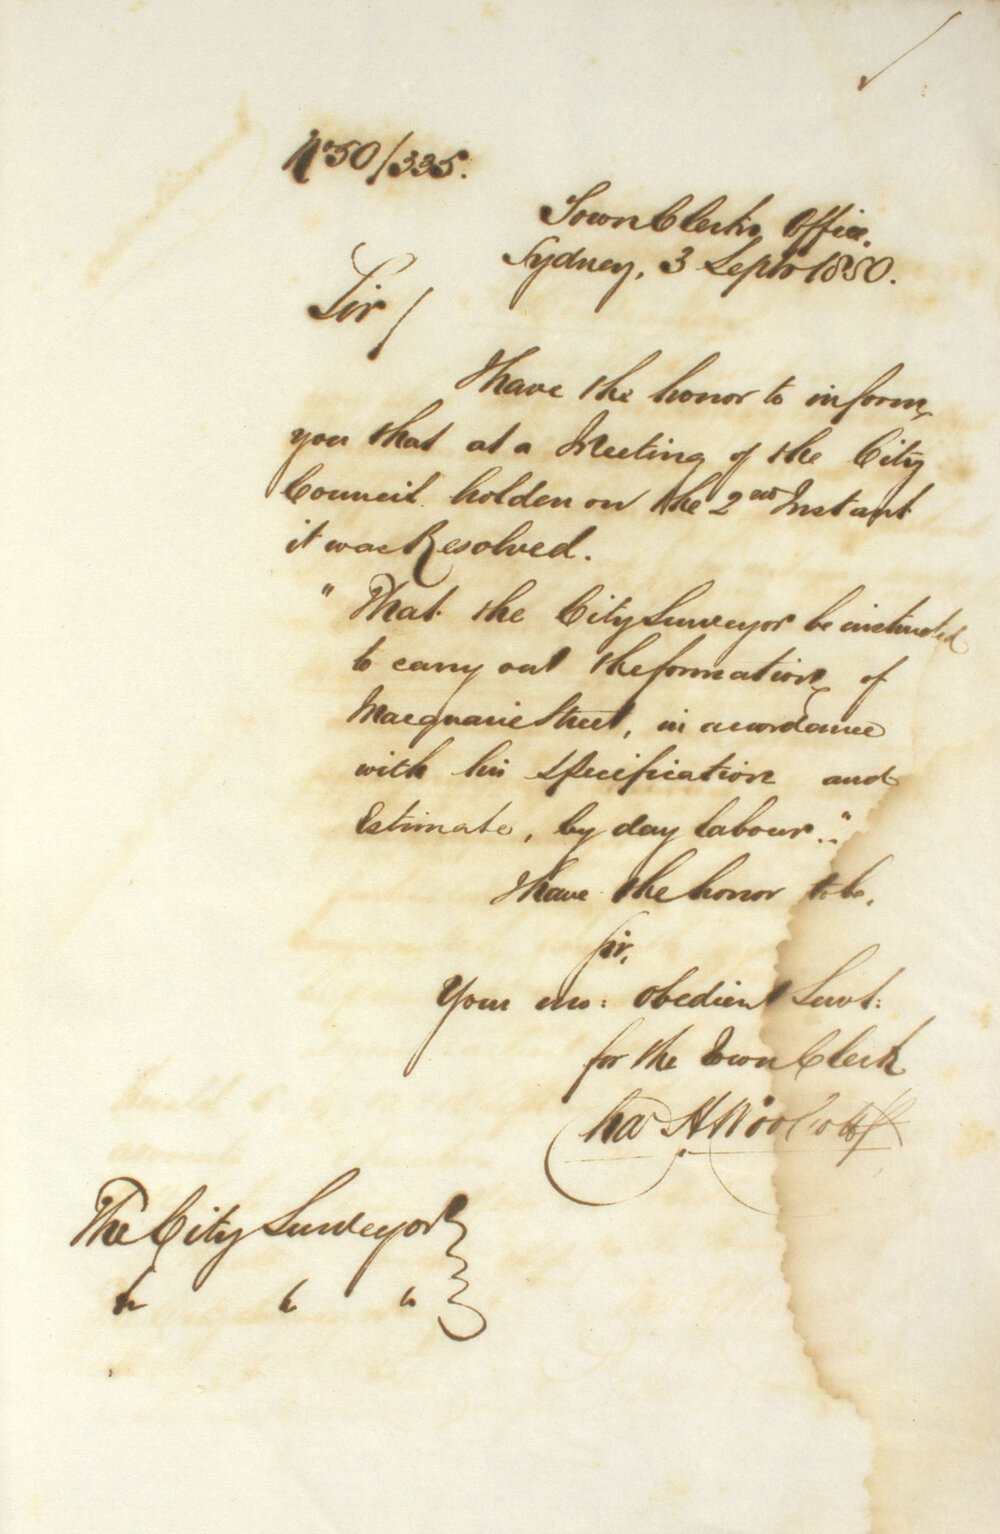 No 50/335.
Town Clerks Office,
Sydney, 3 Septr 1850.
Sir/
I have the honor to inform
you that at a Meeting of the City
Council holden on the 2nd Instant
it was Resolved.
" That the City Surveyor be instructed
to carry out the formation of
Macquarie Street, in accordance
with his specification and
Estimate, by day labour."
I have the honor to be,
Sir,
Your mo: obedient Servt:
for the Town Clerk
Chas H Woolcott
The City Surveyor
" " "